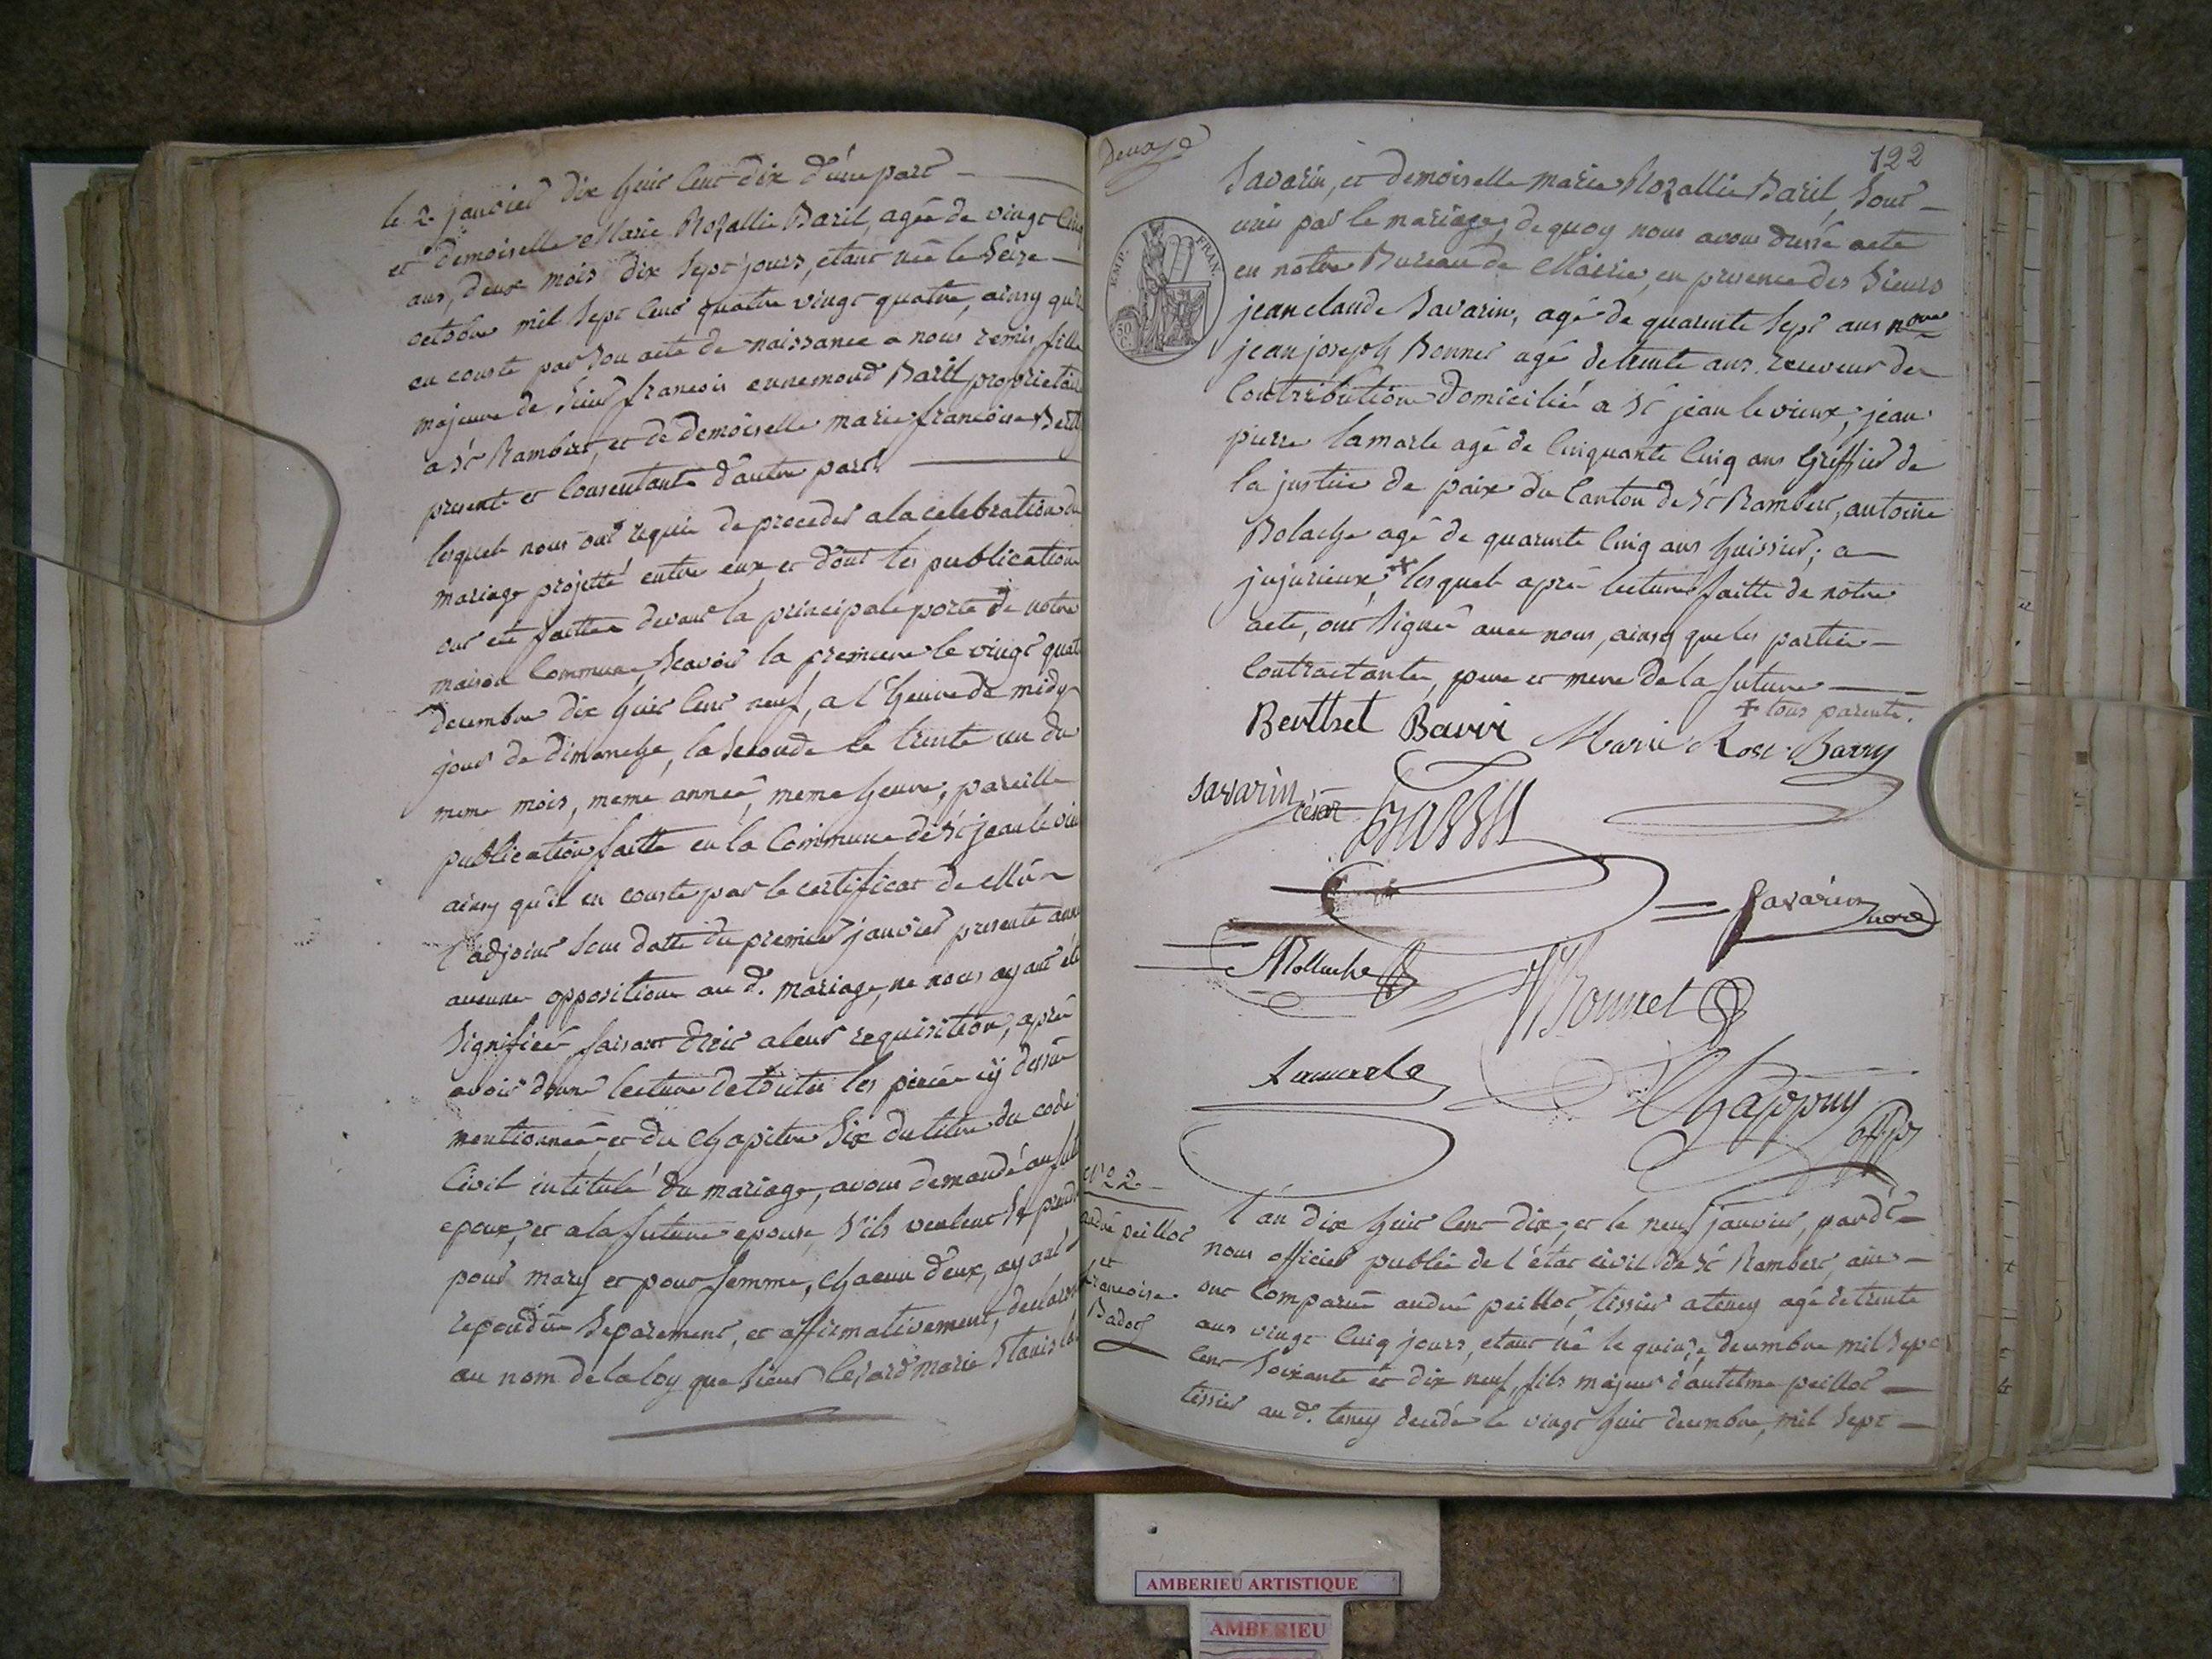 le 2 janvier dix huit cent dix d'une part
et demoiselle Marie Rozallie Baril, agée de vingt cinq
ans, deux mois dix sept jours, etant née le seize
octobre mil sept cent quatre vingt quatre, ainsy qu'il
en conste par son acte de naissance a nous remis fille
majeure de sieur francois ennemond Baril proprietaire
a St Rambert, et de demoiselle marie francoise
presente et consentante d'autre part.
lesquels nous ont requis de proceder a la celebration du
mariage projetté entre eux, et dont les publications
ont été faittes devant la principale porte de notre
maison commune, scavoir la premiere le vingt quatre
decembre dix huit cent neuf, a l'heure de midy
jour de dimanche, la seconde le trente un du
meme mois, meme année, meme heure, pareille
publication faitte en la commune de St jean le vieux
ainsy qu'il en conste par le certificat de Mr
l'adjoint sous datte du premier janvier presente année
aucune opposition au d. mariage, ne nous ayant été
signifiée faisant droit a leur requisition, aprés
avoir donné lecture de toutes les pieces cy dessus
mentionnées et du chapitre six du titre du code
civil intitulé du mariage, avons demandé au futur
epoux, et a la future epouse, s'ils veulent se prendre
pour mary et pour femme, chacun d'eux, ayant
repondu separement, et affirmativement, declarons
au nom de la loy que sieur Cesard marie Stanislas
Deux
122
Savarin, et demoiselle marie Rozallie Baril, sont
unis par le mariage, de quoy nous avons dressé acte
en notre Bureau de Mairie, en presence des sieurs
EMP. FRAN.
50 C.
jean claude Savarin, agé de quarante sept ans nore
jean joseph Bonnet agé de trente ans. receveur des
contributions domicilié a St jean le vieux, jean
pierre lamarle agé de cinquante cinq ans Greffier de
la justice de paix du canton de St Rambert, antoine
Bolache agé de quarante cinq ans huissier; a
jujurieux,+ lesquels aprés lecture faitte de notre
acte, ont signés avec nous, ainsy que les parties
contractantes, pere et mere de la future
+ tous parents.
Berthet Bavri Marie Rose Barry
savarin césar
Savarin nore
Bonnet
Lamarle
Chappuy
off. p.
No 2
andré peilloc
et
francoise
Badod
l'an dix huit cent dix, et le neuf janvier, pardt
nous officier public de l'état civil de St Rambert, ain
ont comparus andré peilloc, tissier a teney agé de trente
ans vingt cinq jours, etant né le quinze decembre mil sept
cent soixante et dix neuf, fils majeur d'antelme peilloc
tissier au d. teney decedé le vingt huit decembre, mil sept
AMBERIEU ARTISTIQUE
AMBERIEU